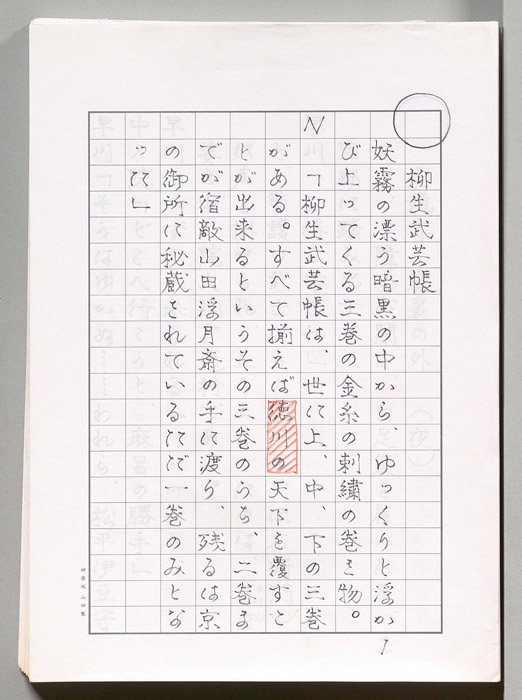 柳生武芸帳
妖霧の漂う暗黒の中から、ゆっくりと浮か
び上ってくる三巻の金糸の刺繍の巻き物。
N「柳生武芸帳は、世に上、中、下の三巻
がある。すべて揃えば徳川の天下を覆すこ
とが出来るというその三巻のうち、二巻ま
でが宿敵山田浮月斎の手に渡り、残るは京
の御所に秘蔵されているただ一巻のみとな
った」
1